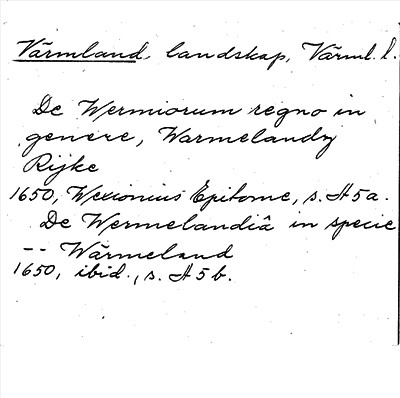 Värmland, landskap, Värml. l.
De Wermiorum regno in
genere, Warmelandz
Rijke
1650, Wexionius Epitome, s. A5a.
De Wermelandiâ in specie
-- Wärmeland
1650, ibid., s. A5b.